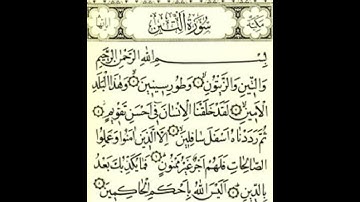 مكية سورة التين آياتها
بسم الله الرحمن الرحيم
والتين والزيتون وطور سينين وهذا البلد
الأمين لقد خلقنا الإنسان في أحسن تقويم
ثم رددناه أسفل سافلين إلا الذين آمنوا وعملوا
الصالحات فلهم أجر غير ممنون فما يكذبك بعد
بالدين أليس الله بأحكم الحاكمين